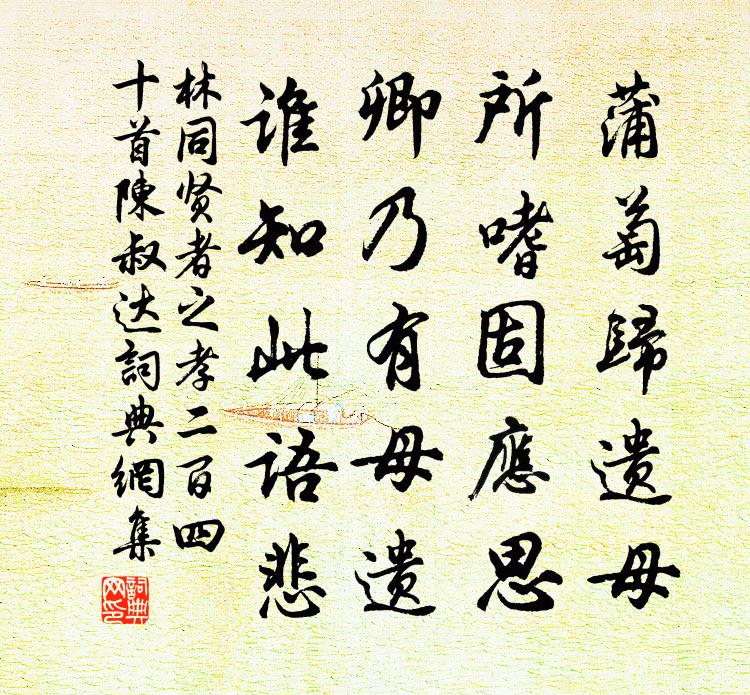 蒲萄歸遺母
所嗜固應思
卿乃有母遺
誰知此語悲
林同贤者之孝二百四
十首陳叔达詞典網集
詞典
网印